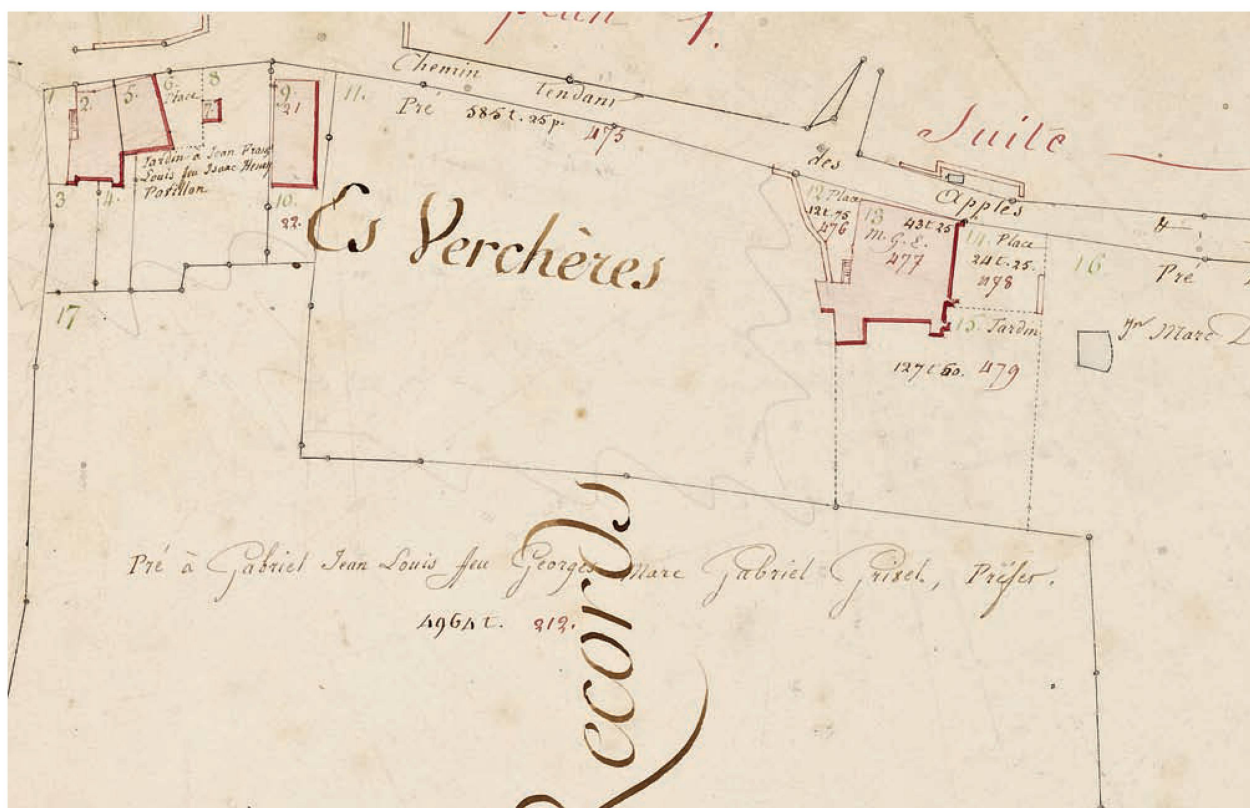 plan 1.
Chemin tendant des Apples
Suite
1
2.
5.
6.
Place
7.
8
9.
21
11.
Pré 585 t. 25 p.
475
Jardin à Jean Franç
Louis feu Isaac Henry
Pavillon
3
4.
10.
22.
Es Verchères
12 Place
12 t. 75
476
13
43 t. 25
M. G. E.
477
14. Place
24 t. 25.
478
15. Jardin
127 t. 60. 479
16
Pré
Marc D
17
Pré à Gabriel Jean Louis feu Georges Marc Gabriel Grivel, Préfet.
4964 t. 212.
Records